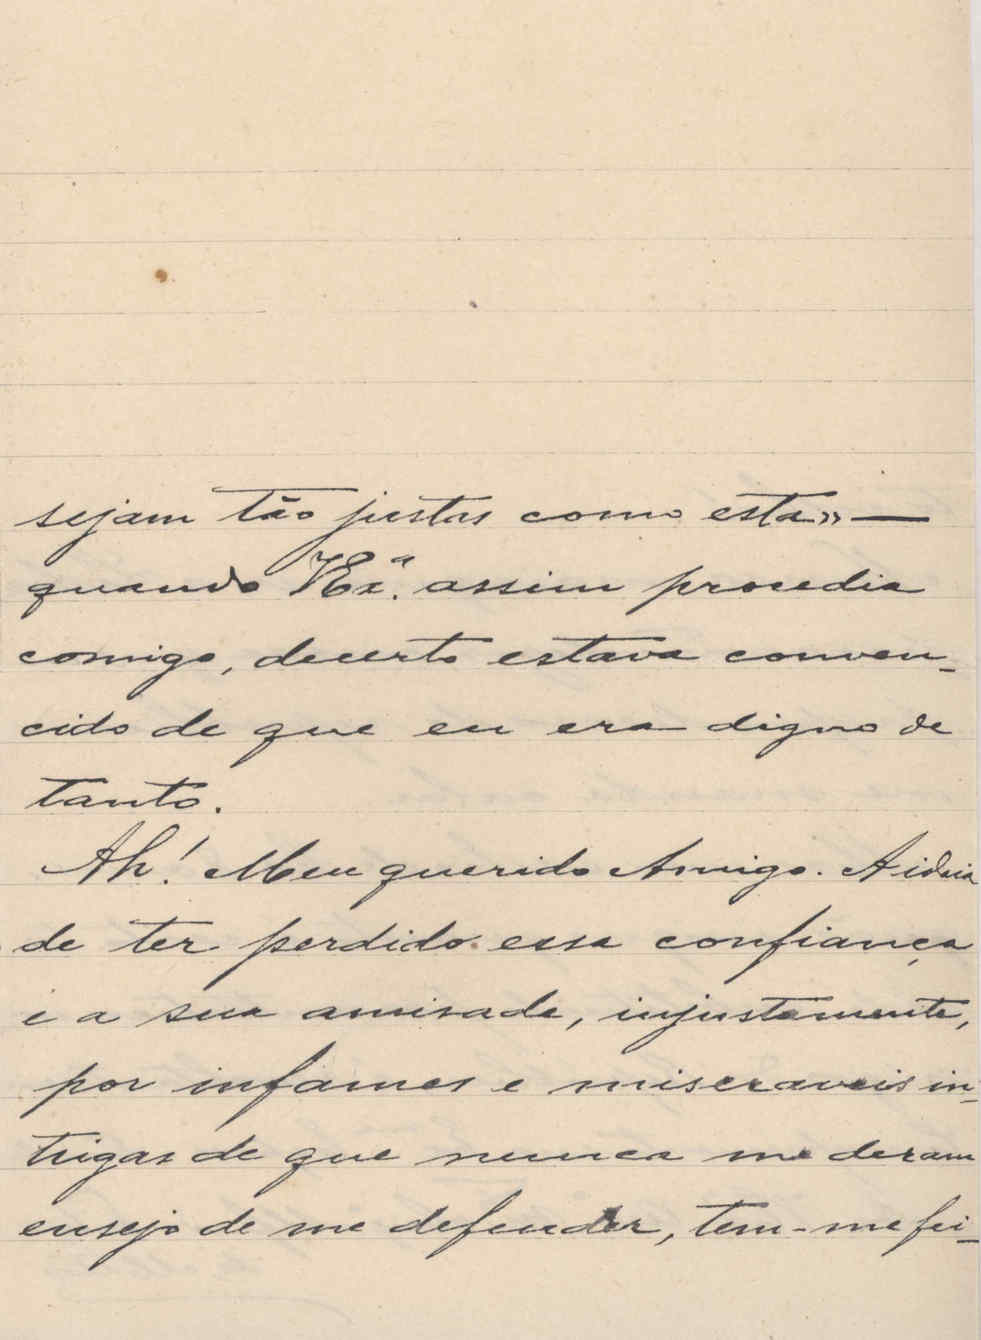 sejam tão justas como esta» —
quando V Ex.ª assim procedia
comigo, decerto estava conven-
cido de que eu era digno de
tanto.
Ah! Meu querido Amigo. A ideia
de ter perdido essa confiança
e a sua amisade, injustamente,
por infames e miseraveis in-
trigas de que nunca me deram
ensejo de me defender, tem-me fei-